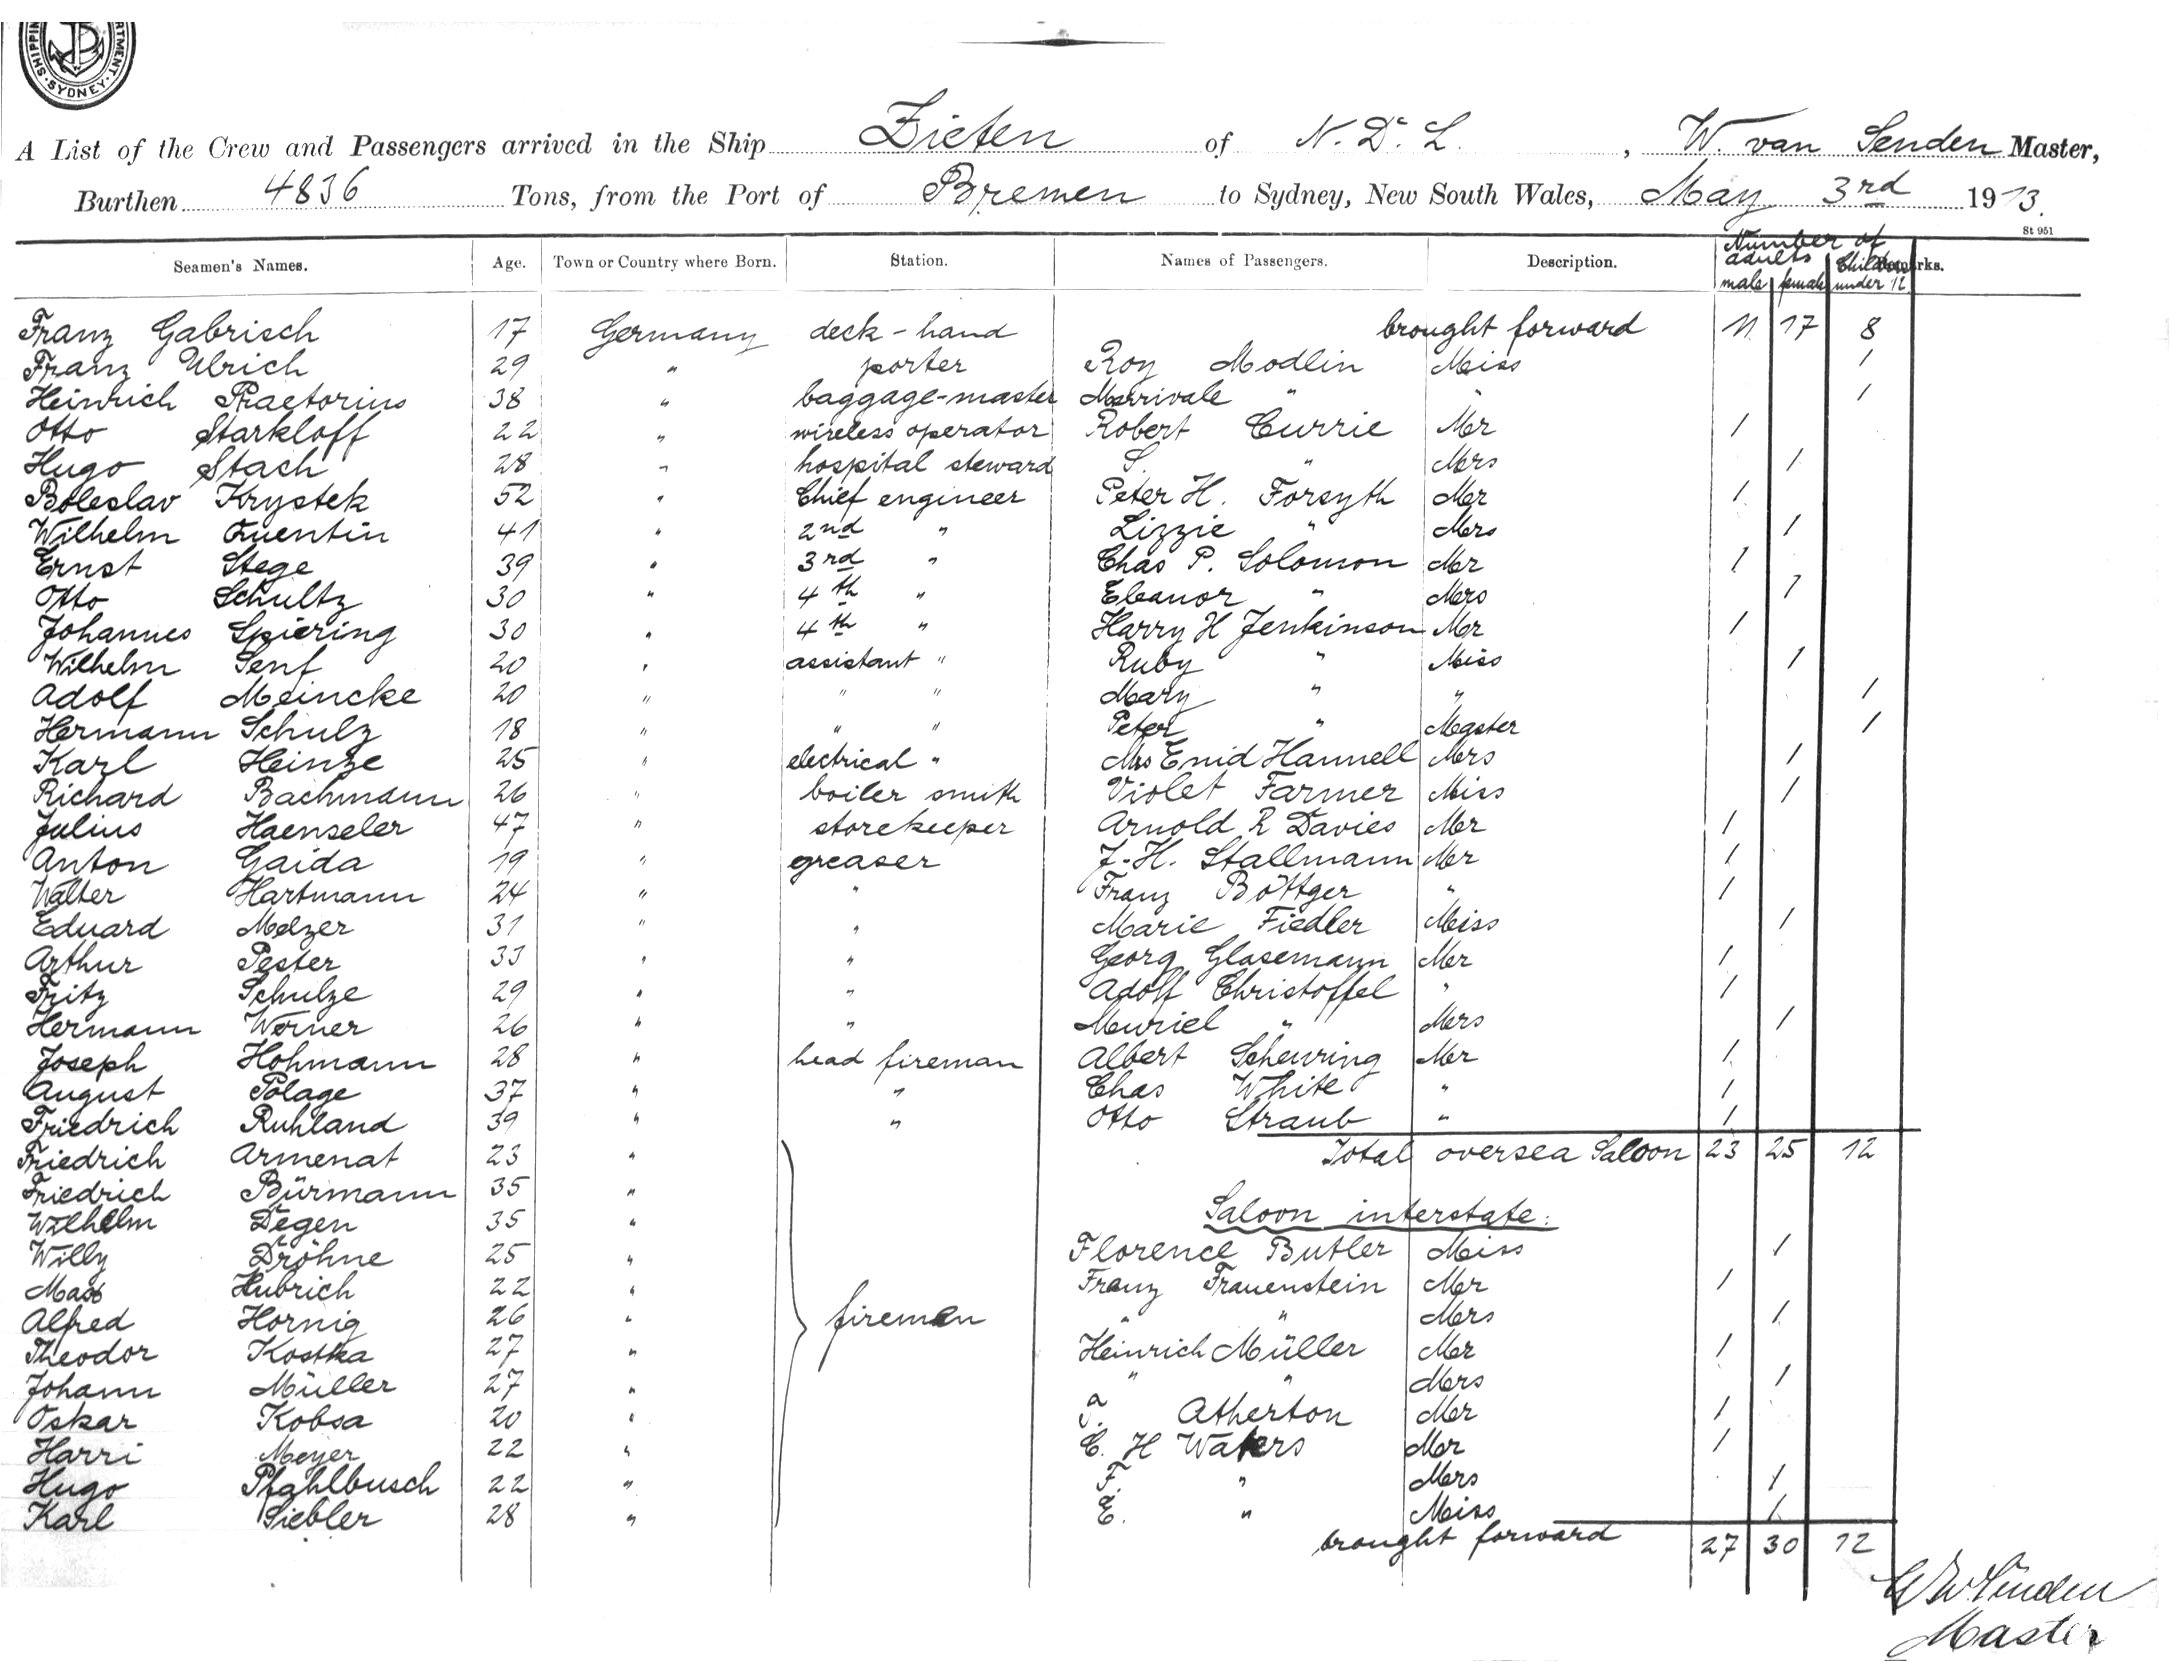 SHIPPIN RTMENT. SYDNEY.
A List of the Crew and Passengers arrived in the Ship Zieten of N. D. L. , W. van Senden Master,
Burthen 4836 Tons, from the Port of Bremen to Sydney, New South Wales, May 3rd 1913.
St 951
Seamen's Names. Age. Town or Country where Born. Station. Names of Passengers. Description. Number of adults males female Children under 12 Remarks.
Franz Gabrisch 17 Germany deck-hand brought forward 11 17 8
Franz Ulrich 29 " porter Roy Modlin Miss 1
Heinrich Praetorius 38 " baggage-master Merrivale " " 1
Otto Starkloff 22 " wireless operator Robert Currie Mr 1
Hugo Stach 28 " hospital steward S. " Mrs 1
Boleslav Krystek 52 " Chief engineer Peter H. Forsyth Mr 1
Wilhelm Quentin 41 " 2nd " Lizzie " Mrs 1
Ernst Stege 39 " 3rd " Chas P. Solomon Mr 1
Otto Schultz 30 " 4th " Eleanor " Mrs 1
Johannes Spiering 30 " 4th " Harry H Jenkinson Mr 1
Wilhelm Senf 20 " assistant " Ruby " Miss 1
Adolf Meincke 20 " " " Mary " " 1
Hermann Schulz 18 " " " Peter " Master 1
Karl Heinze 25 " electrical " Mrs Enid Hannell Mrs 1
Richard Bachmann 26 " boiler smith Violet Farmer Miss 1
Julius Haenseler 47 " storekeeper Arnold R Davies Mr 1
Anton Gaida 19 " greaser J. H. Stallmann Mr 1
Walter Hartmann 24 " " Franz Böttger " 1
Eduard Melzer 31 " " Marie Fiedler Miss 1
Arthur Pester 33 " " Georg Glasemann Mr 1
Fritz Schulze 29 " " Adolf Christoffel " 1
Hermann Werner 26 " " Muriel " Mrs 1
Joseph Hohmann 28 " head fireman Albert Scheuring Mr 1
August Polage 37 " " Chas White " 1
Friedrich Ruhland 39 " " Otto Straub " 1
Friedrich Armenat 23 " Total oversea Saloon 23 25 12
Friedrich Bürmann 35 "
Wilhelm Degen 35 " Saloon interstate:
Willy Dröhne 25 " Florence Butler Miss 1
Max Hubrich 22 " Franz Frauenstein Mr 1
Alfred Hornig 26 " firemen " " Mrs 1
Theodor Kostka 27 " Heinrich Müller Mr 1
Johann Müller 27 " " " Mrs 1
Oskar Kobsa 20 " Atherton Mr 1
Harri Meyer 22 " C. H Waters Mr 1
Hugo Pfahlbusch 22 " F. " Mrs 1
Karl Siebler 28 " E. " Miss 1
brought forward 27 30 12
W v Senden
Master